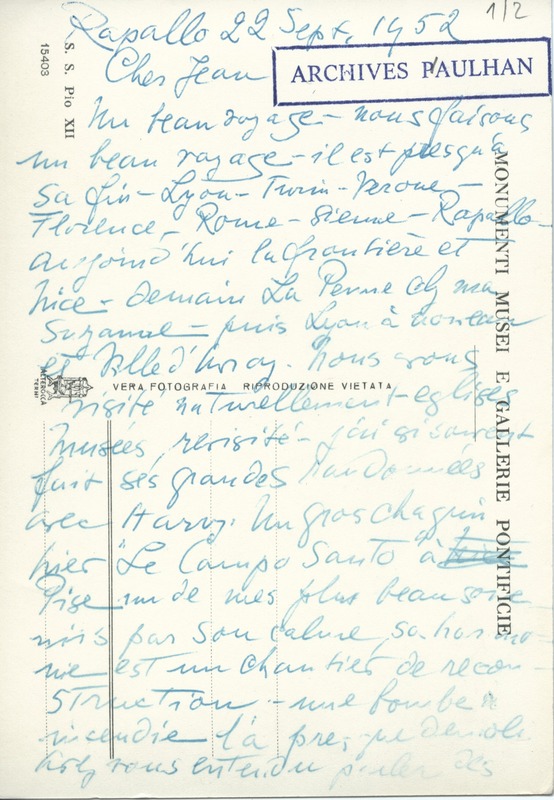 Rapallo 22 Sept. 1952
1/2
Cher Jean
ARCHIVES PAULHAN
15403
S. S. Pio XII
Un beau voyage - nous faisons
un beau voyage - il est presqu'à
sa fin - Lyon - Turin - Verone -
Florence - Rome - Sienne - Rapallo -
aujourd'hui la frontière et
Nice - demain La ch ma
Suzanne - puis Lyon à nouveau
et Ville d'Avray. Nous avons
VERA FOTOGRAFIA RIPRODUZIONE VIETATA
visité naturellement eglises
musées, revisité - j'ai si souvent
fait ses grandes randonnées
avec Harry. Un gros chagrin
hier "Le Campo Santo" à
Pise un de mes plus beau souve-
nirs par son calme, sa harmo-
nie est un chantier de recon-
struction - une bombe
incendie l'a presque demoli
avez vous entendu parler des
MONUMENTI MUSEI E GALLERIE PONTIFICIE